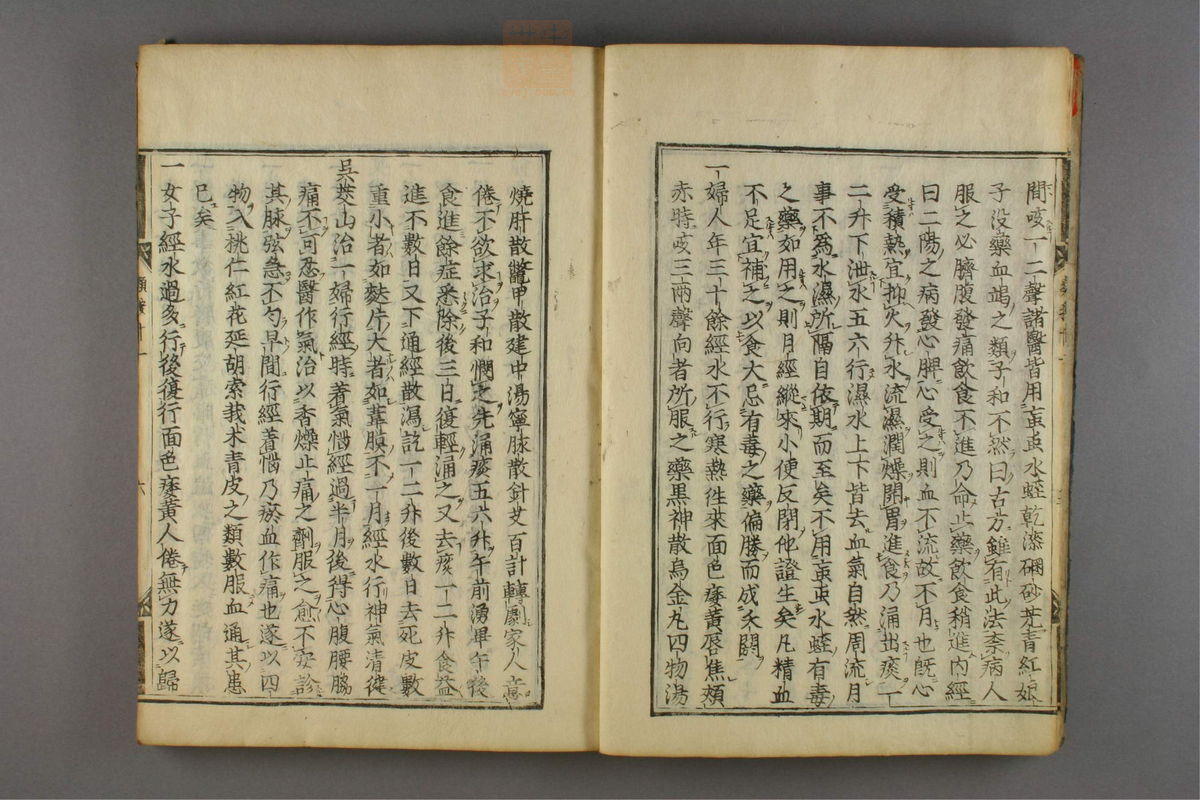 間咳一二聲諸醫皆用䖟虫水蛭乾漆硇砂芫青紅娘
子没藥血竭之類子和不然曰古方雖有此法柰病人
服之必臍腹發痛飲食不進乃命止藥飲食稍進内經
曰二陽之病發心脾心受之則血不流故不月也既心
受積熱宜抑火升水流濕潤燥開胃進食乃涌出痰一
二升下泄水五六行濕水上下皆去血氣自然周流月
事不為水濕所隔自依期而至矣不用䖟虫水蛭有毒
之藥如用之則月經縱來小便反閉他證生矣凡精血
不足宜補之以食大忌有毒之藥偏勝而成夭閼
一婦人年三十餘經水不行寒熱徃來面色痿黃唇焦頰
赤時咳三兩聲向者所服之藥黑神散烏金丸四物湯
燒肝散鱉甲散建中湯寧肺散針艾百計轉劇家人意
倦不欲求治子和憫之先涌痰五六升午前湧畢午後
食進餘症悉除後三日復輕涌之又去痰一二升食益
進不數日又下通經散瀉訖一二升後數日去死皮數
重小者如麩片大者如葦膜不一月經水行神氣清徤
吳茭山治一婦行經時著氣惱經過半月後得心腹腰脇
痛不可忍醫作氣治以香燥止痛之劑服之愈不安診
其脉弦急不勻早間行經著惱乃瘀血作痛也遂以四
物入桃仁紅花延胡索莪朮青皮之類數服血通其患
已矣
一女子經水過多行後復行面色痿黃人倦無力遂以歸